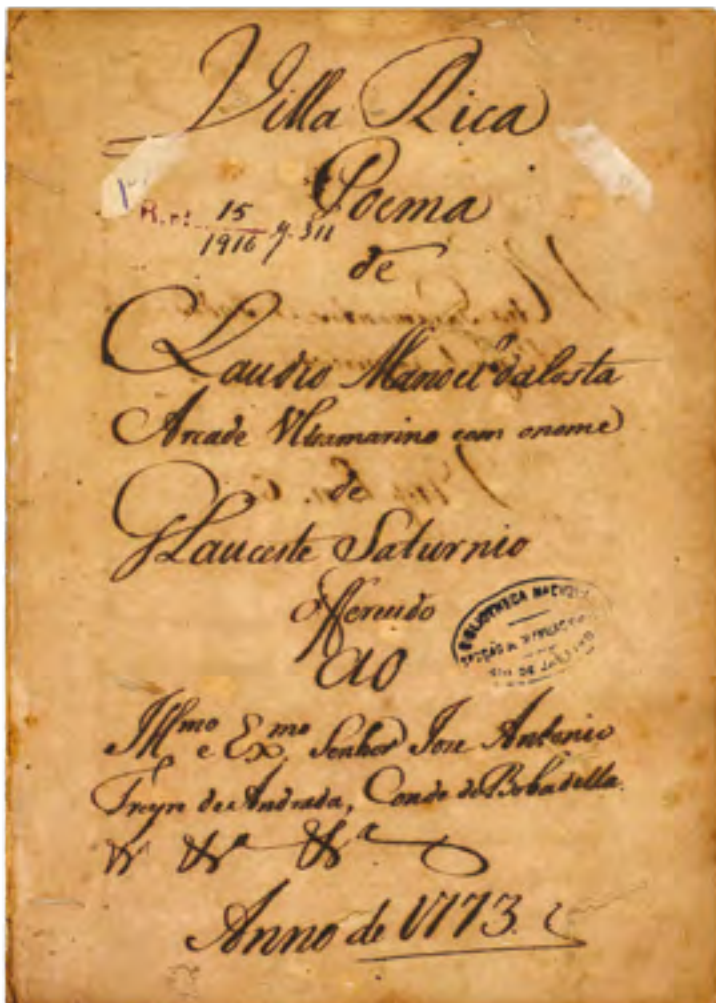 Villa Rica
Poema
R. n: 15
1916 g. 311
de
Claudio Manoel da Costa
Arcade Ultramarino com o nome
de
Glauceste Saturnio
Offerecido
ao
Ill.mo e Ex.mo Senhor Jose Antonio
Freyre de Andrada, Conde de Bobadella.
&ª &ª &ª
Anno de 1773.
BIBLIOTHECA NACIONAL
RIO DE JANEIRO